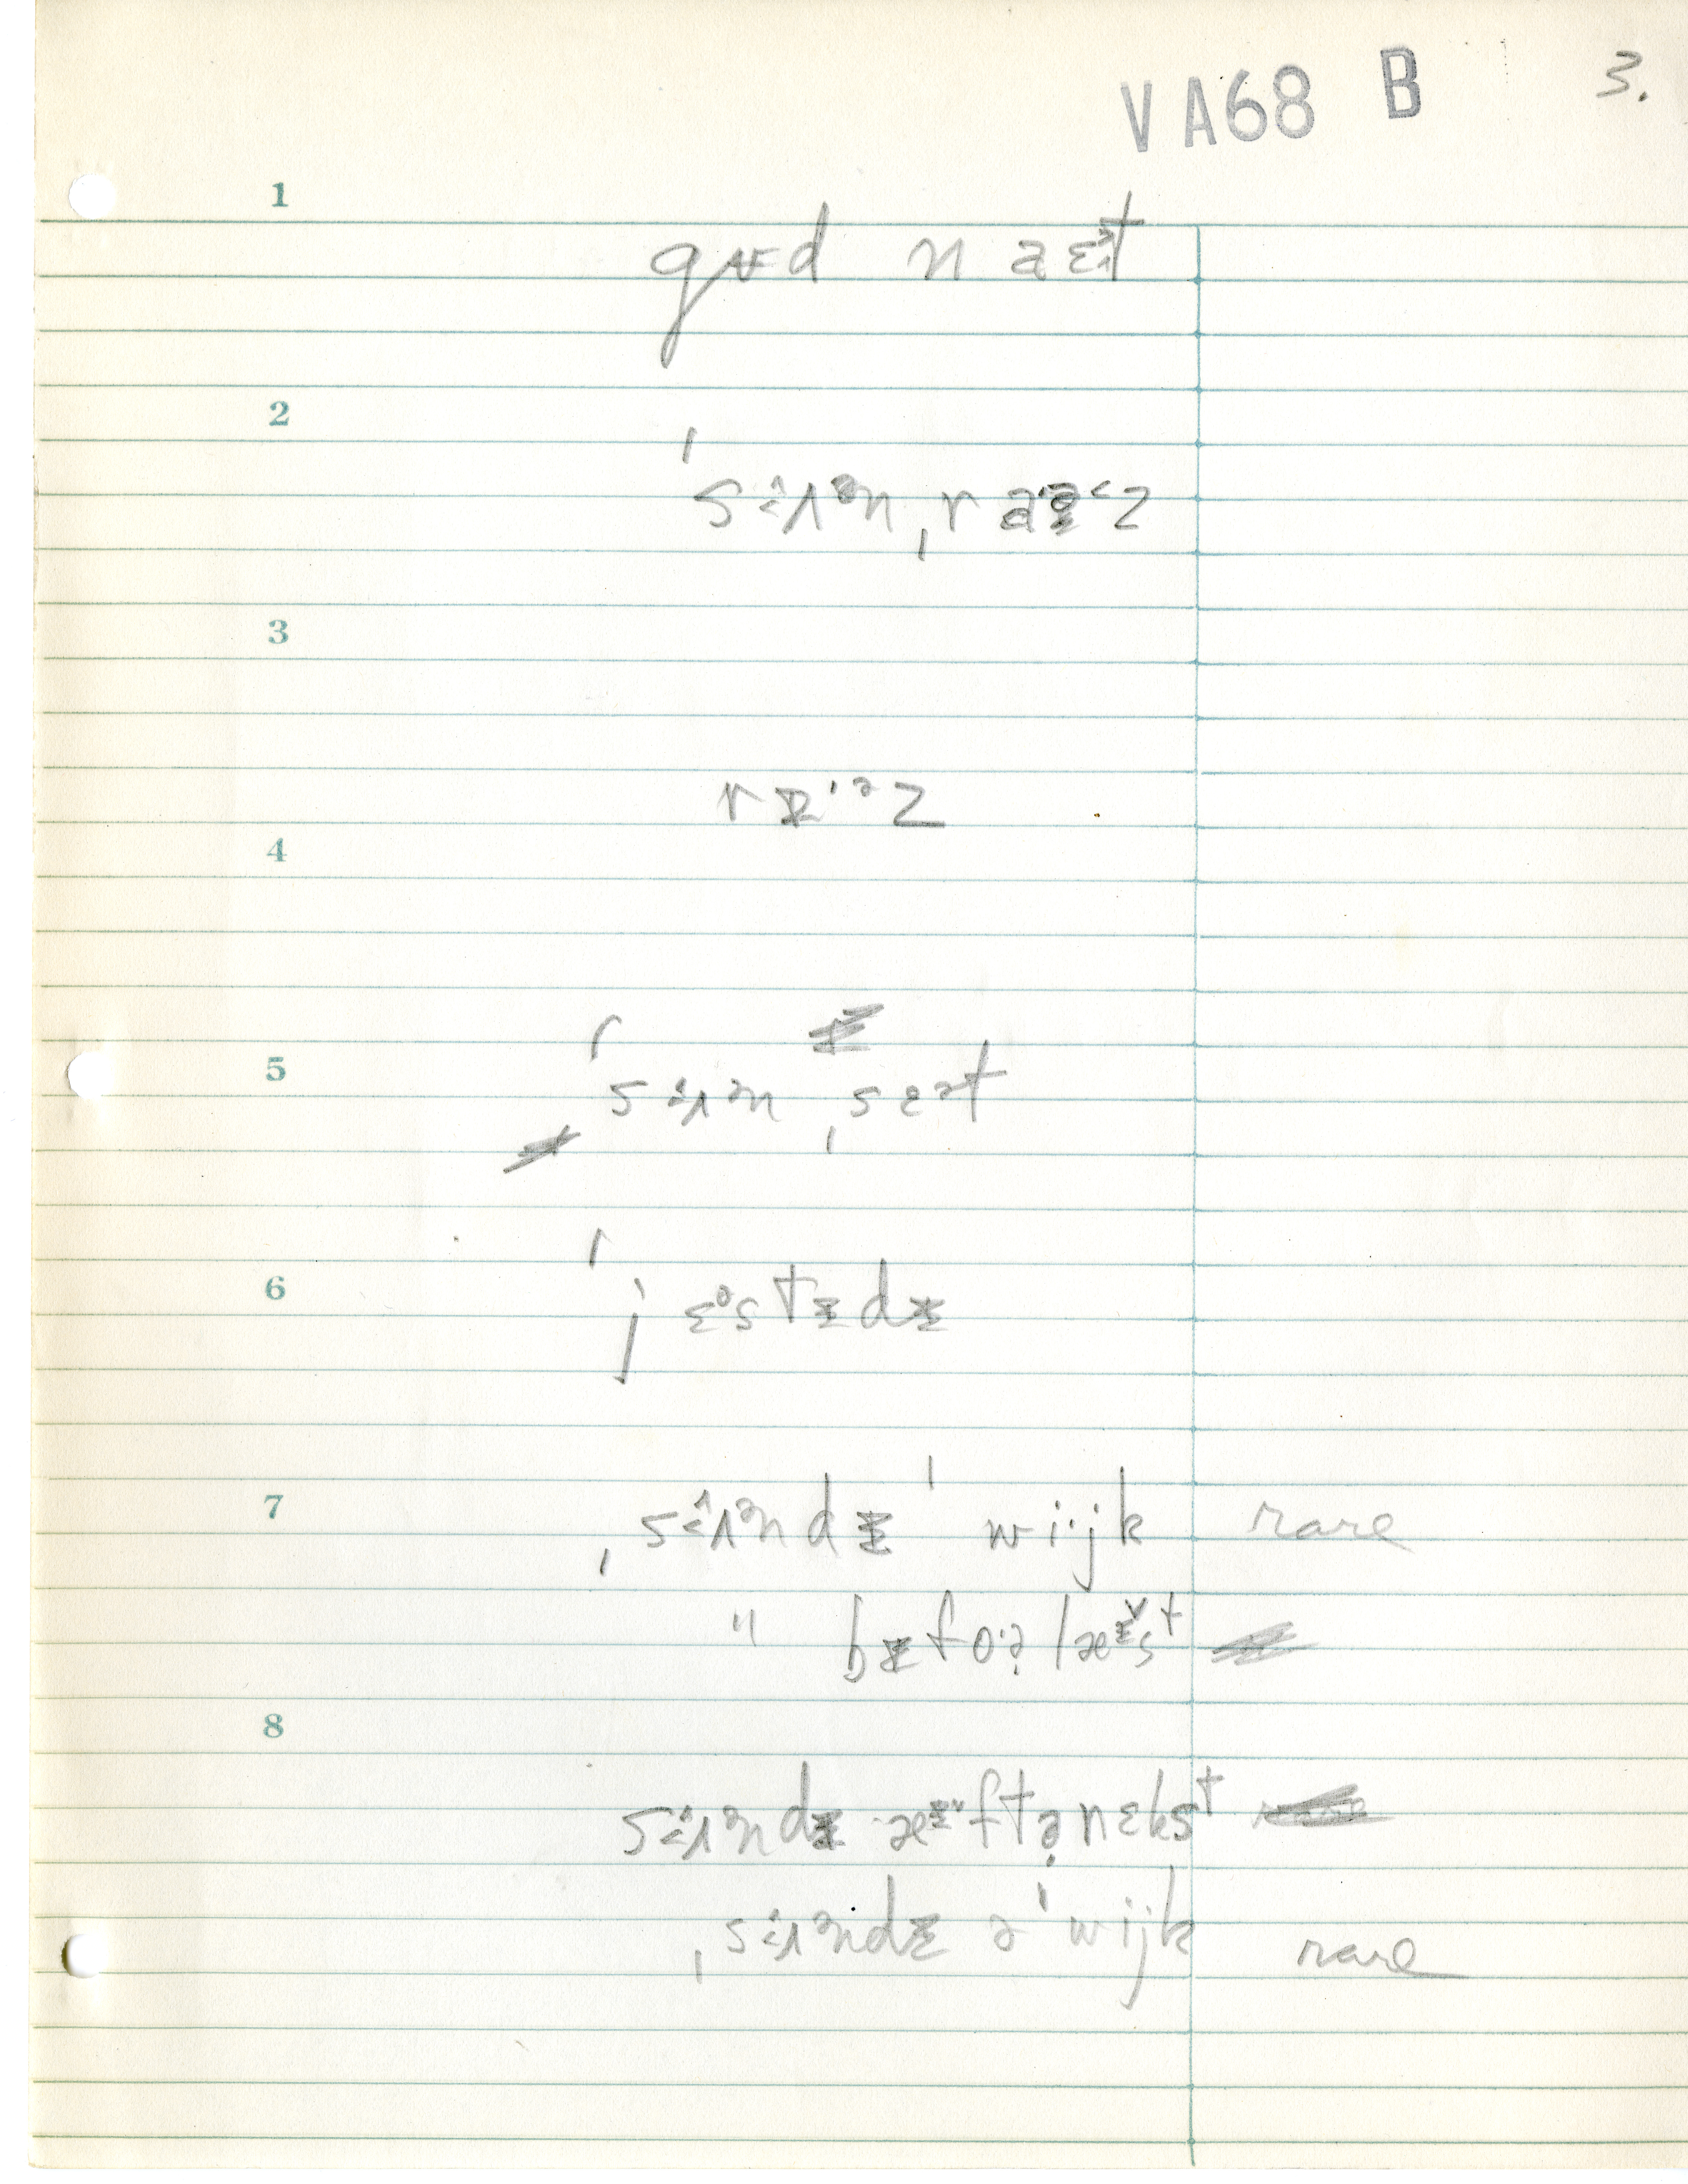 VA68 B 3.
1
gᵾd n a ɛᵊt
2
ˈsʌᵊn ˌr aᵊz
3
4
r ᵻˑᵊz
5
ˈsʌᵊn ˌsɛət
6
ˈjɛᵊstᵻdᵻ
7
ˌsʌᵊndᵻ ˈwi·jk rare
" bᵻfo·ə̣ læᵻ˅st
8
sʌᵊndᵻ æᵻ˅ftə̣nɛkst
ˌsʌᵊndᵻ ə ˈwijk rare